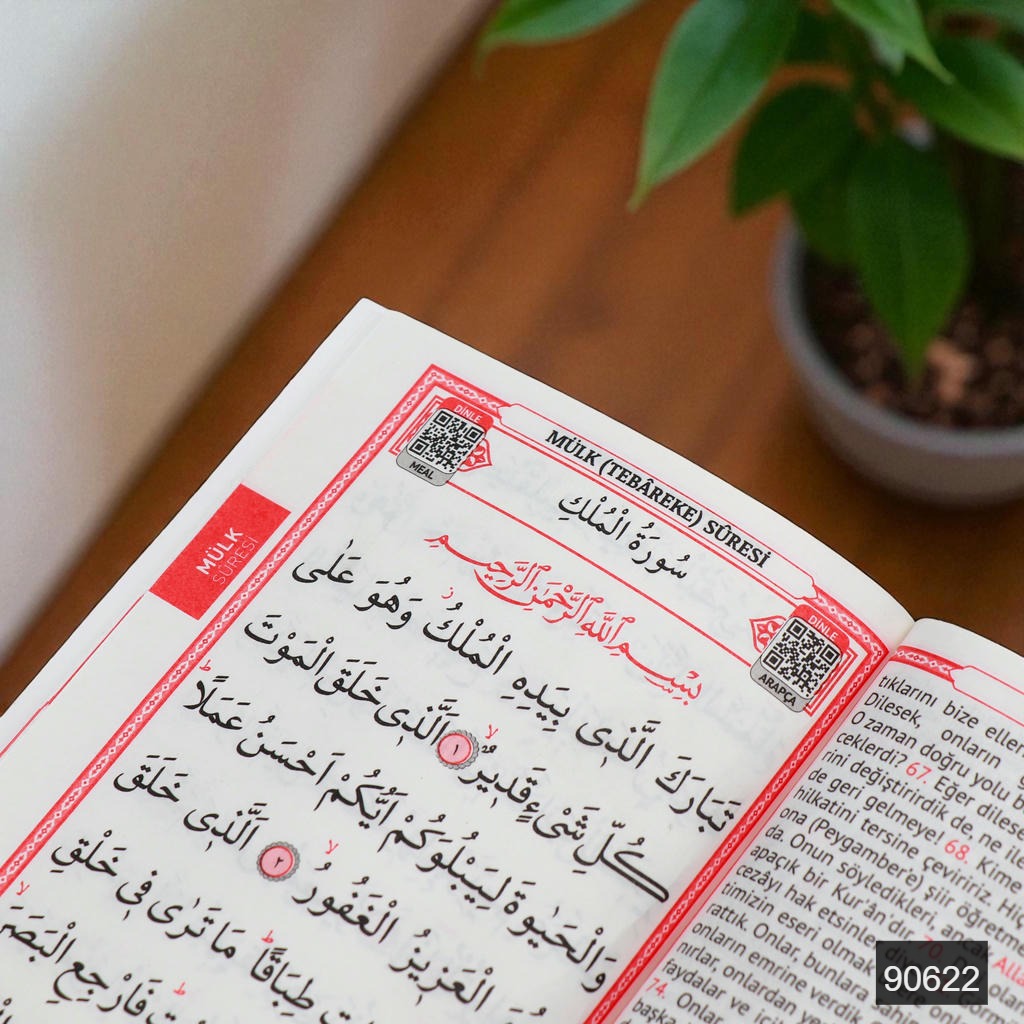 DİNLE
MEAL
MÜLK (TEBÂREKE) SÛRESİ
سُورَةُ الْمُلْكِ
DİNLE
ARAPÇA
MÜLK
SÛRESİ
بِسْمِ اللّٰهِ الرَّحْمٰنِ الرَّحِيمِ
تَبَارَكَ الَّذِى بِيَدِهِ الْمُلْكُ وَهُوَ عَلٰى
كُلِّ شَىْءٍ قَدِيرٌ ١ اَلَّذِى خَلَقَ الْمَوْتَ
وَالْحَيٰوةَ لِيَبْلُوَكُمْ اَيُّكُمْ اَحْسَنُ عَمَلًا
الْعَزِيزُ الْغَفُورُ ٢ اَلَّذِى خَلَقَ
طِبَاقًا مَا تَرٰى فِى خَلْقِ
فَارْجِعِ الْبَصَرَ
tıklarını bize
Dilesek, onların
O zaman doğru yolu
ceklerdi? 67. Eğer
rini değiştirirdik de, ne
de geri gelmeye! 68. Kime
hilkatini tersine çeviririz.
ona (Peygambere) şiir
da. Onun söyledikleri, ancak
apaçık bir Kur'ân'dır.
cezâyı hak etsinler
timizin eseri olmak
rattık. Onlar, bunlara
onların emrine verdik
nırlar, onlardan
faydalar ve
74. Onlar
başka
90622